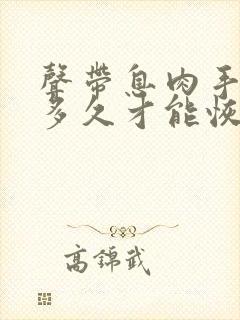 聲帶息肉手
多久才能恢
高錦武